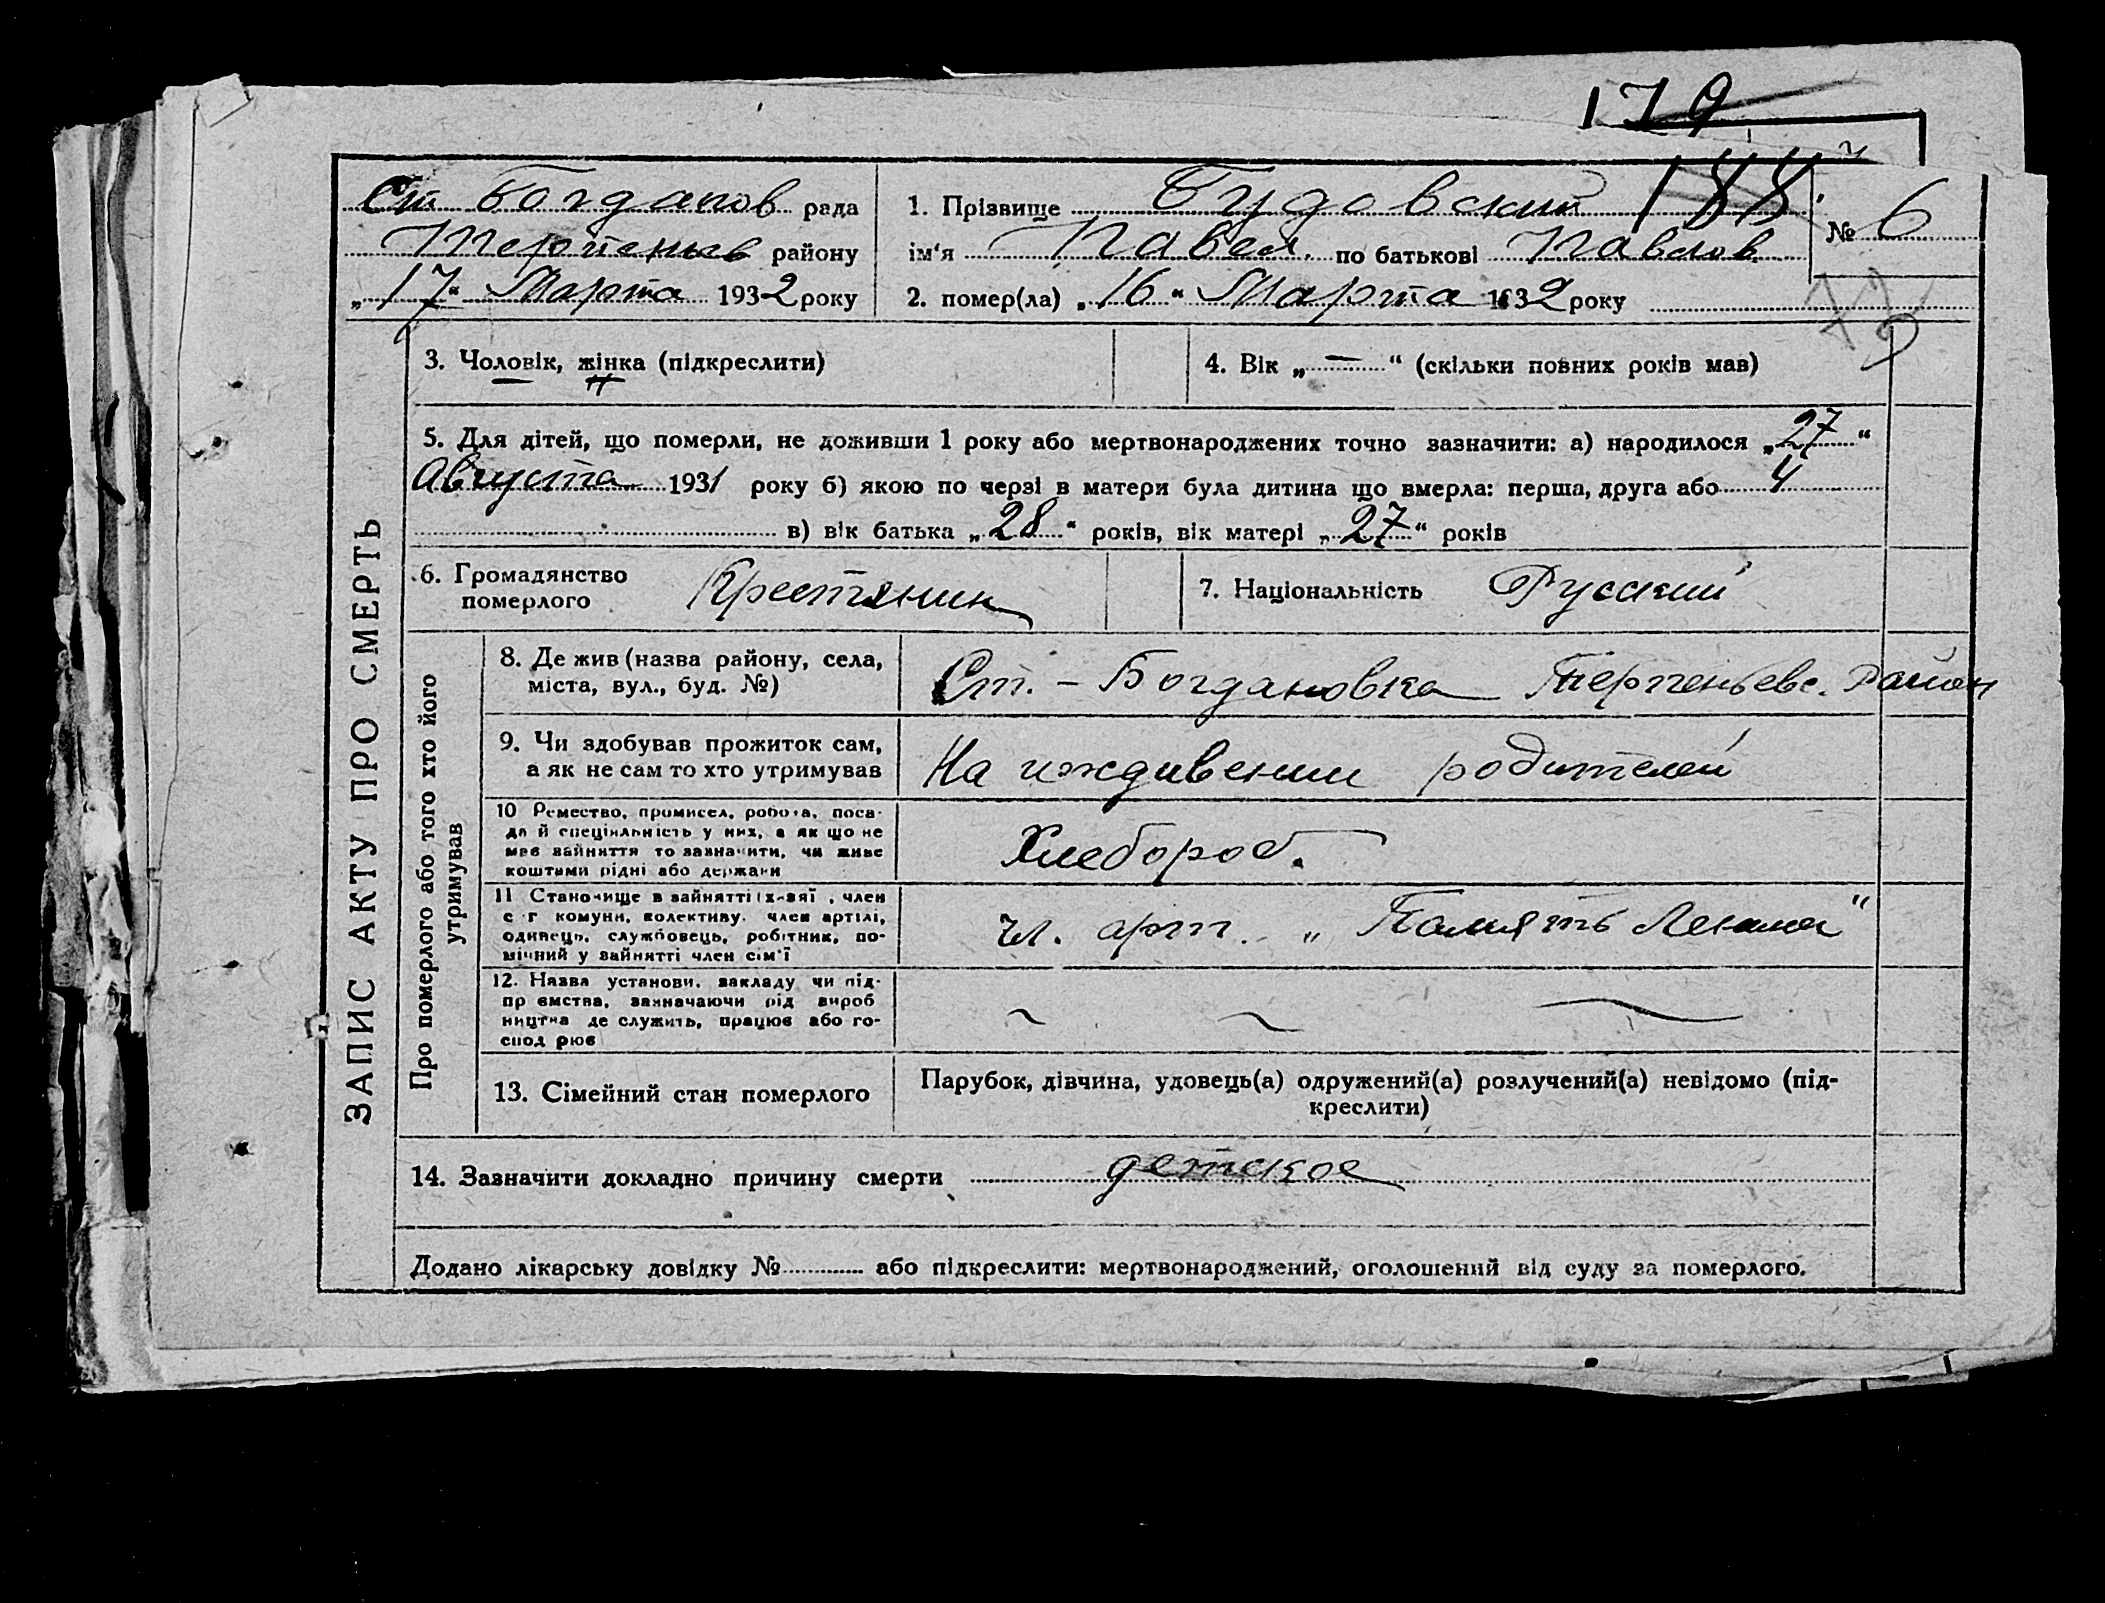 179
188
Ст Богданов рада
Терпеньев району
„17“ Марта 1932 року
1. Прізвище Будовский
ім'я Павел. по батькові Павлов.
2. помер(ла) „16“ Марта 1932 року
№ 6
72
3. Чоловік, жінка (підкреслити)
4. Вік „—“ (скільки повних років мав)
5. Для дітей, що померли, не доживши 1 року або мертвонароджених точно зазначити: а) народилося „27“
Августа 1931 року б) якою по черзі в матери була дитина що вмерла: перша, друга або 4
в) вік батька „28“ років, вік матері „27“ років
6. Громадянство
померлого Крестянин
7. Національність Русский
ЗАПИС АКТУ ПРО СМЕРТЬ
Про померлого або того хто його
утримував
8. Де жив (назва району, села,
міста, вул., буд. №)
Ст. - Богдановка Терпеньевс. Район
9. Чи здобував прожиток сам,
а як не сам то хто утримував
На иждивении родителей
10 Ремество, промисел, робота, поса-
да й спеціяльність у них, а як що не
має зайняття то зазначити, чи живе
коштами рідні або держави
Хлебороб.
11 Становище в зайнятті член
с-г комуни, колективу, член артілі,
одинець, службовець, робітник, по-
мічний у зайнятті член сім'ї
чл. арт. „Память Ленина“
12. Назва установи, закладу чи під-
пр ємства, зазначаючи рід вироб
ництва де служить, працює або го-
спод рює
13. Сімейний стан померлого
Парубок, дівчина, удовець(а) одружений(а) розлучений(а) невідомо (під-
креслити)
14. Зазначити докладно причину смерти детское
Додано лікарську довідку № або підкреслити: мертвонароджений, оголошений від суду за померлого.